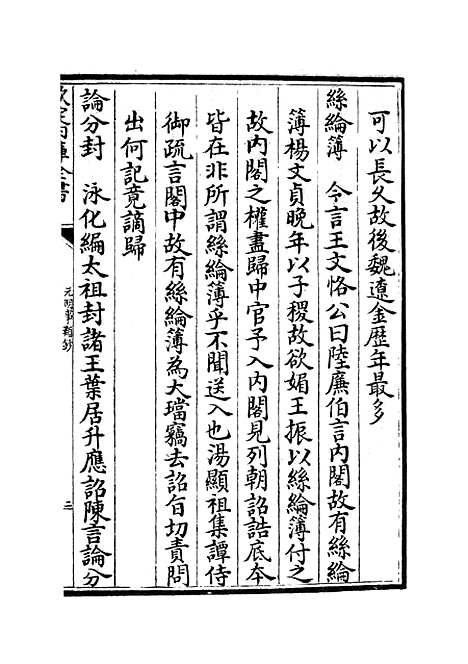 可以長久故後魏遼金歴年最多
絲綸簿　今言王文恪公曰陸廉伯言内閣故有絲綸
簿楊文貞晚年以子稷故欲媚王振以絲綸簿付之
故内閣之權盡歸中官予入内閣見列朝詔誥底本
皆在非所謂絲綸簿乎不聞送入也湯顯祖集譚侍
御疏言閣中故有絲綸簿為大璫竊去詔㫖切責問
出何記竟謫歸
論分封　泳化編太祖封諸王葉居升應詔陳言論分
欽定四庫全書
元明事類鈔
三